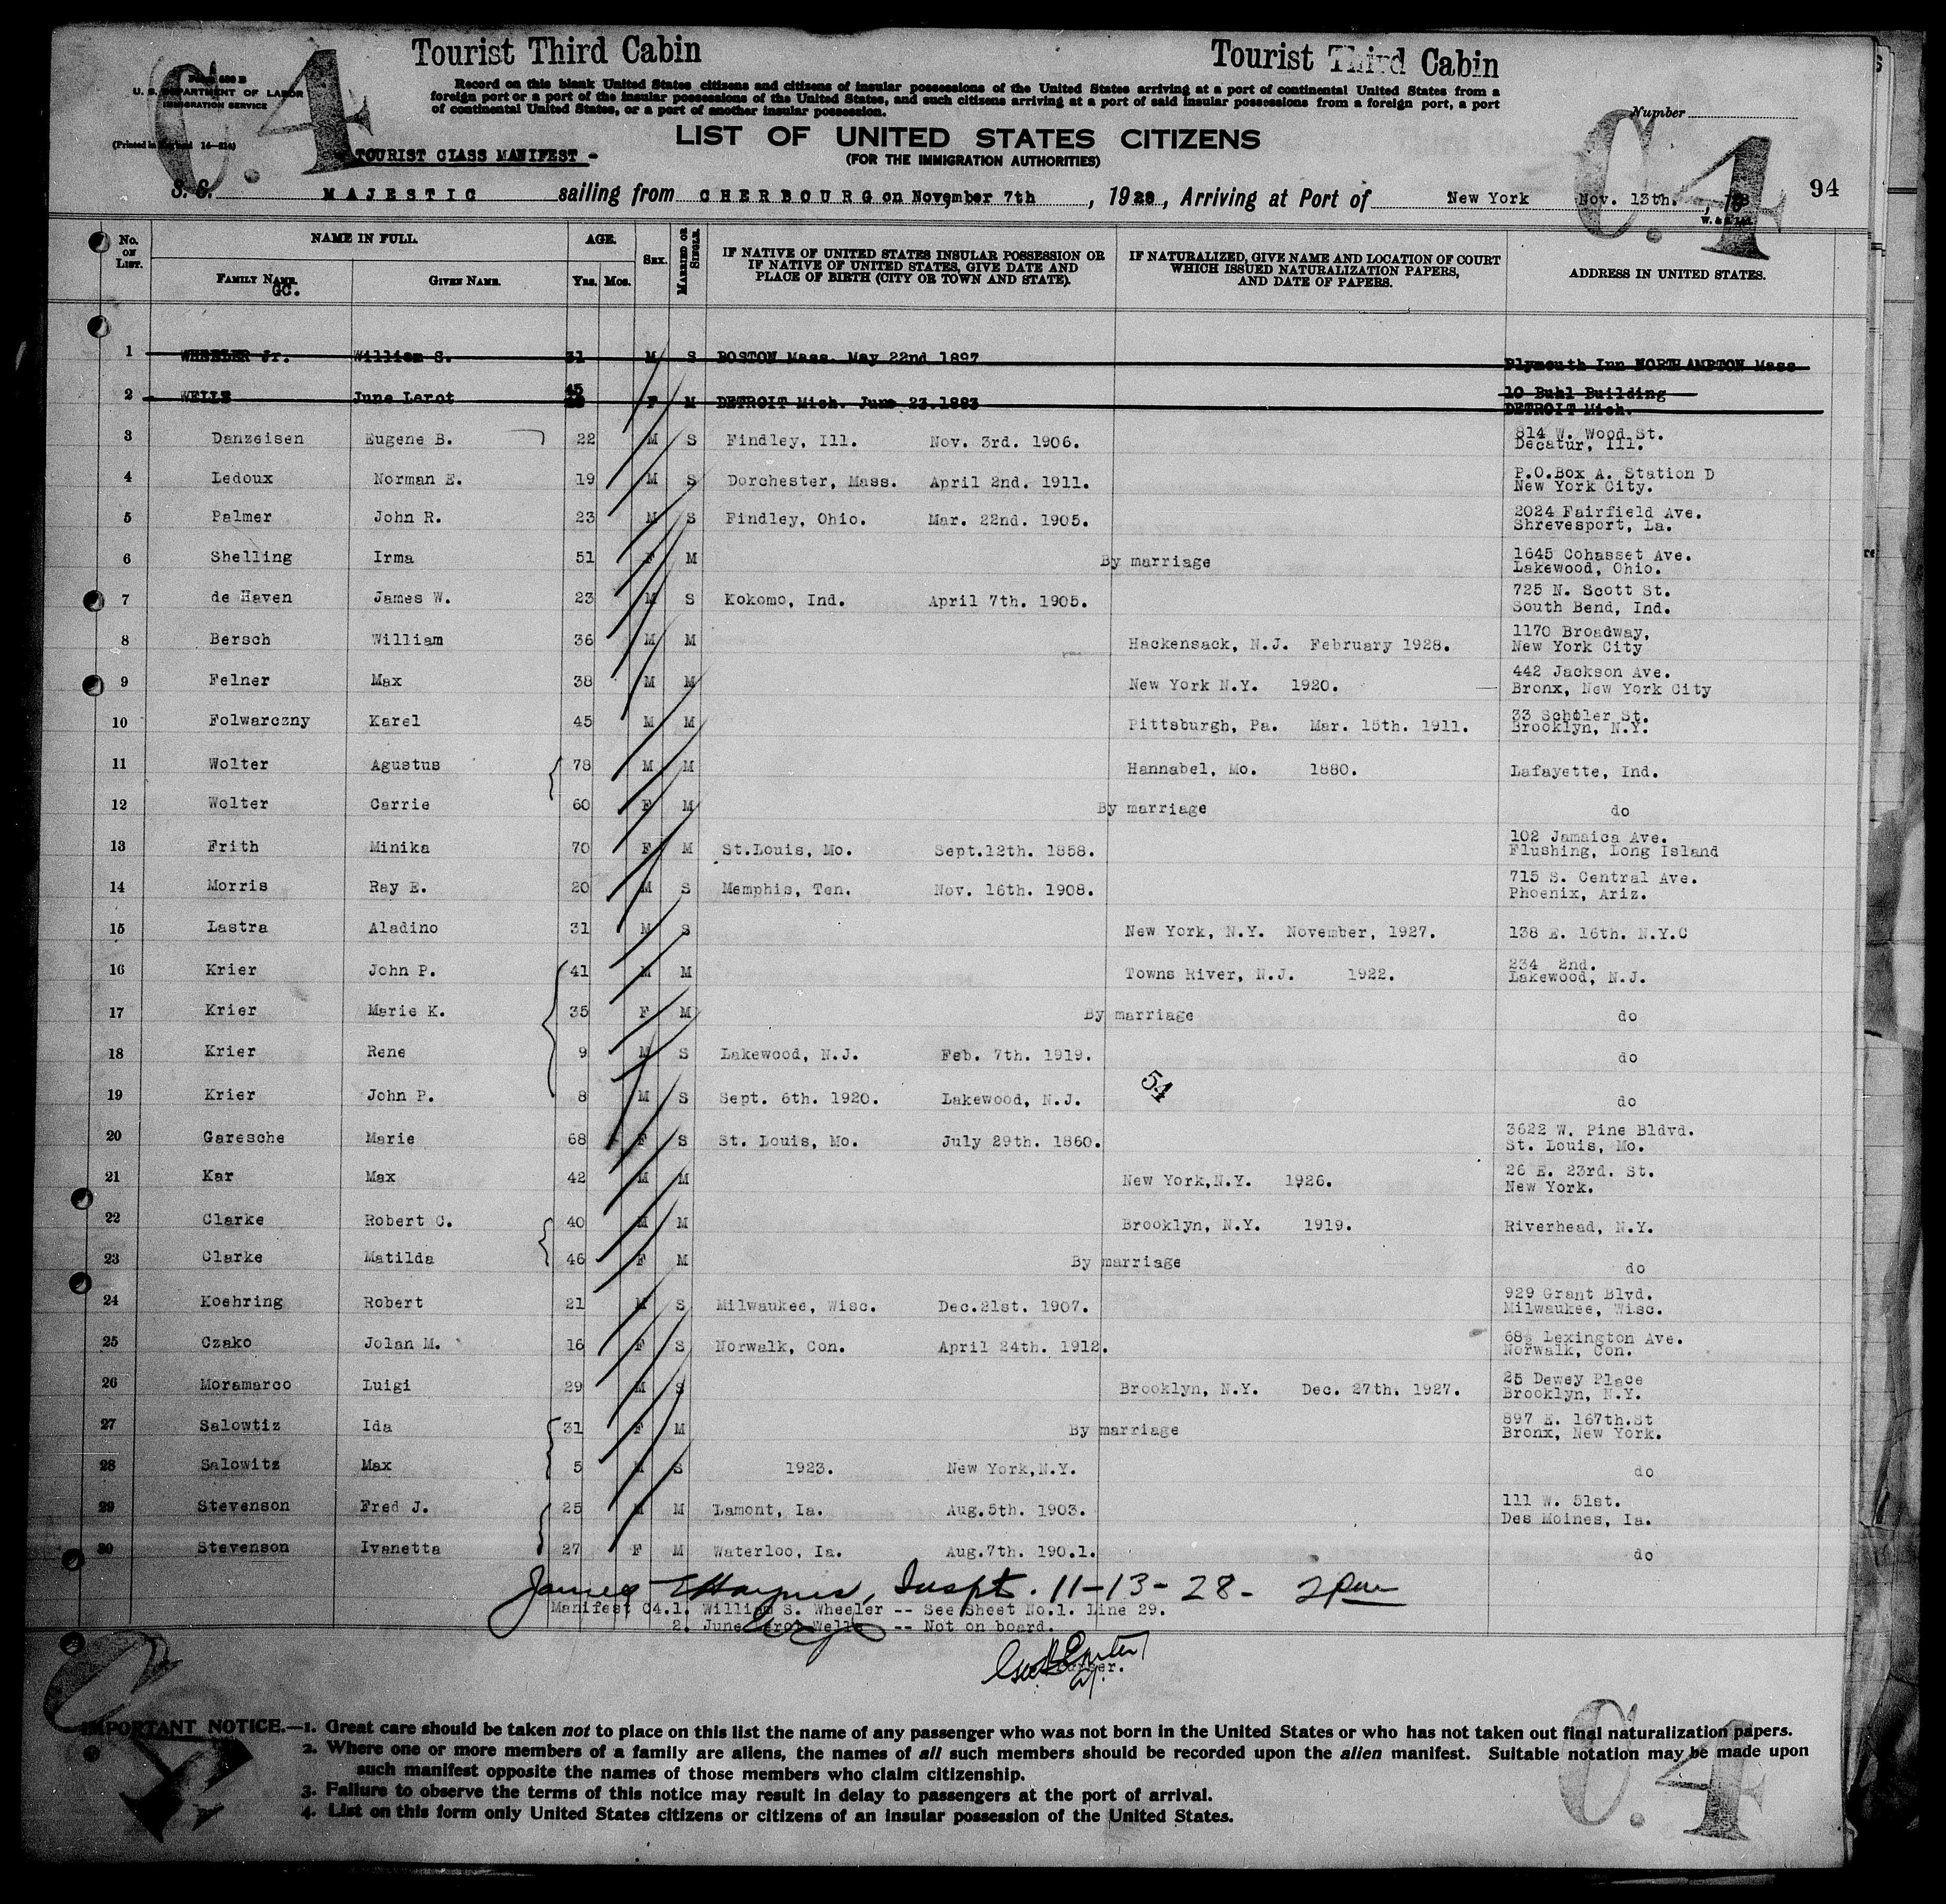 C.4
Tourist Third Cabin
Tourist Third Cabin
Form 630 B
U. S. DEPARTMENT OF LABOR
IMMIGRATION SERVICE
Record on this blank United States citizens and citizens of insular possessions of the United States arriving at a port of continental United States from a
foreign port or a port of the insular possessions of the United States, and such citizens arriving at a port of said insular possessions from a foreign port, a port
of continental United States, or a port of another insular possession.
Number
C.4
LIST OF UNITED STATES CITIZENS
(FOR THE IMMIGRATION AUTHORITIES)
- TOURIST CLASS MANIFEST -
S. S. MAJESTIC sailing from CHERBOURG on November 7th , 1928 , Arriving at Port of New York Nov. 13th. , 1928
94
No. on List. NAME IN FULL. AGE. Sex. Married or Single. IF NATIVE OF UNITED STATES INSULAR POSSESSION OR IF NATIVE OF UNITED STATES, GIVE DATE AND PLACE OF BIRTH (CITY OR TOWN AND STATE). IF NATURALIZED, GIVE NAME AND LOCATION OF COURT WHICH ISSUED NATURALIZATION PAPERS, AND DATE OF PAPERS. ADDRESS IN UNITED STATES.
Family Name. Given Name. Yrs. Mos.
GC.
1 WHEELER Jr. William S. 31 M S BOSTON Mass. May 22nd 1897 Plymouth Inn NORTHAMPTON Mass
2 WELLS June Larot 45 F M DETROIT Mich. June 23.1883 10 Buhl Building
DETROIT Mich.
3 Danzeisen Eugene B. 22 M S Findley, Ill. Nov. 3rd. 1906. 814 W. Wood St.
Decatur, Ill.
4 Ledoux Norman E. 19 M S Dorchester, Mass. April 2nd. 1911. P.O.Box A. Station D
New York City.
5 Palmer John R. 23 M S Findley, Ohio. Mar. 22nd. 1905. 2024 Fairfield Ave.
Shrevesport, La.
6 Shelling Irma 51 F M By marriage 1645 Cohasset Ave.
Lakewood, Ohio.
7 de Haven James W. 23 M S Kokomo, Ind. April 7th. 1905. 725 N. Scott St.
South Bend, Ind.
8 Bersch William 36 M M Hackensack, N.J. February 1928. 1170 Broadway,
New York City
9 Felner Max 38 M M New York N.Y. 1920. 442 Jackson Ave.
Bronx, New York City
10 Folwarczny Karel 45 M M Pittsburgh, Pa. Mar. 15th. 1911. 33 Scholer St.
Brooklyn, N.Y.
11 Wolter Agustus 78 M M Hannabel, Mo. 1880. Lafayette, Ind.
12 Wolter Carrie 60 F M By marriage do
13 Frith Minika 70 F M St.Louis, Mo. Sept.12th. 1858. 102 Jamaica Ave.
Flushing, Long Island
14 Morris Ray E. 20 M S Memphis, Ten. Nov. 16th. 1908. 715 S. Central Ave.
Phoenix, Ariz.
15 Lastra Aladino 31 M S New York, N.Y. November, 1927. 138 E. 16th. N.Y.C
16 Krier John P. 41 M M Towns River, N.J. 1922. 234 2nd.
Lakewood, N.J.
17 Krier Marie K. 35 F M By marriage do
18 Krier Rene 9 M S Lakewood, N.J. Feb. 7th. 1919. do
19 Krier John P. 8 M S Sept. 6th. 1920. Lakewood, N.J. 54 do
20 Garesche Marie 68 F S St. Louis, Mo. July 29th. 1860. 3622 W. Pine Bldvd.
St. Louis, Mo.
21 Kar Max 42 M M New York,N.Y. 1926. 26 E. 23rd. St.
New York.
22 Clarke Robert C. 40 M M Brooklyn, N.Y. 1919. Riverhead, N.Y.
23 Clarke Matilda 46 F M By marriage do
24 Koehring Robert 21 M S Milwaukee, Wisc. Dec.21st. 1907. 929 Grant Blvd.
Milwaukee, Wisc.
25 Czako Jolan M. 16 F S Norwalk, Con. April 24th. 1912. 68½ Lexington Ave.
Norwalk, Con.
26 Moramarco Luigi 29 M S Brooklyn, N.Y. Dec. 27th. 1927. 25 Dewey Place
Brooklyn, N.Y.
27 Salowtiz Ida 31 F M By marriage 897 E. 167th.St
Bronx, New York.
28 Salowitz Max 5 M S 1923. New York,N.Y. do
29 Stevenson Fred J. 25 M M Lamont, Ia. Aug.5th. 1903. 111 W. 51st.
Des Moines, Ia.
30 Stevenson Ivanetta 27 F M Waterloo, Ia. Aug.7th. 190.1. do
James E Haynes, Inspt. 11-13-28- 2pm
Manifest C4.1. William S. Wheeler -- See Sheet No.1. Line 29.
2. June Larot Wells -- Not on board.
Purser.
IMPORTANT NOTICE.—1. Great care should be taken not to place on this list the name of any passenger who was not born in the United States or who has not taken out final naturalization papers.
2. Where one or more members of a family are aliens, the names of all such members should be recorded upon the alien manifest. Suitable notation may be made upon
such manifest opposite the names of those members who claim citizenship.
3. Failure to observe the terms of this notice may result in delay to passengers at the port of arrival.
4. List on this form only United States citizens or citizens of an insular possession of the United States.
C.4
C.4